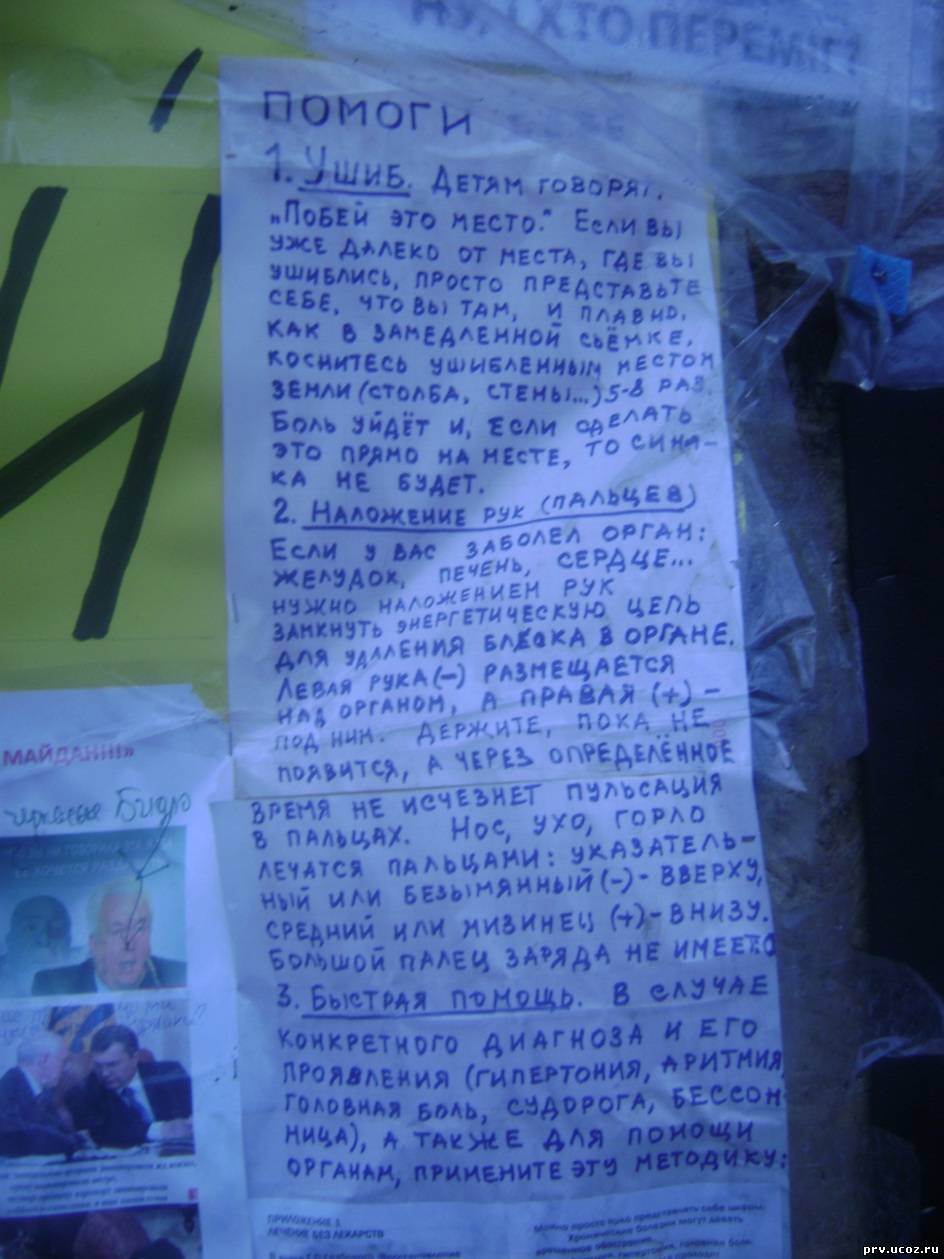 НУ, І ХТО ПЕРЕМІГ?
ПОМОГИ
1. УШИБ. ДЕТЯМ ГОВОРЯТ:
„ПОБЕЙ ЭТО МЕСТО." ЕСЛИ ВЫ
УЖЕ ДАЛЕКО ОТ МЕСТА, ГДЕ ВЫ
УШИБЛИСЬ, ПРОСТО ПРЕДСТАВЬТЕ
СЕБЕ, ЧТО ВЫ ТАМ, И ПЛАВНО,
КАК В ЗАМЕДЛЕННОЙ СЬЁМКЕ,
КОСНИТЕСЬ УШИБЛЕННЫМ МЕСТОМ
ЗЕМЛИ (СТОЛБА, СТЕНЫ...) 5-8 РАЗ.
БОЛЬ УЙДЁТ И, ЕСЛИ СДЕЛАТЬ
ЭТО ПРЯМО НА МЕСТЕ, ТО СИНЯ-
КА НЕ БУДЕТ.
2. НАЛОЖЕНИЕ РУК (ПАЛЬЦЕВ)
ЕСЛИ У ВАС ЗАБОЛЕЛ ОРГАН:
ЖЕЛУДОК, ПЕЧЕНЬ, СЕРДЦЕ...
НУЖНО НАЛОЖЕНИЕМ РУК
ЗАМКНУТЬ ЭНЕРГЕТИЧЕСКУЮ ЦЕПЬ
ДЛЯ УДАЛЕНИЯ БЛОКА В ОРГАНЕ.
ЛЕВАЯ РУКА (-) РАЗМЕЩАЕТСЯ
НАД ОРГАНОМ, А ПРАВАЯ (+) -
ПОД НИМ. ДЕРЖИТЕ, ПОКА НЕ
ПОЯВИТСЯ, А ЧЕРЕЗ ОПРЕДЕЛЁННОЕ
ВРЕМЯ НЕ ИСЧЕЗНЕТ ПУЛЬСАЦИЯ
В ПАЛЬЦАХ. НОС, УХО, ГОРЛО
ЛЕЧАТСЯ ПАЛЬЦАМИ: УКАЗАТЕЛЬ-
НЫЙ ИЛИ БЕЗЫМЯННЫЙ (-) - ВВЕРХУ,
СРЕДНИЙ ИЛИ МИЗИНЕЦ (+) - ВНИЗУ.
БОЛЬШОЙ ПАЛЕЦ ЗАРЯДА НЕ ИМЕЕТ.
3. БЫСТРАЯ ПОМОЩЬ. В СЛУЧАЕ
КОНКРЕТНОГО ДИАГНОЗА И ЕГО
ПРОЯВЛЕНИЯ (ГИПЕРТОНИЯ, АРИТМИЯ,
ГОЛОВНАЯ БОЛЬ, СУДОРОГА, БЕССОН-
НИЦА), А ТАКЖЕ ДЛЯ ПОМОЩИ
ОРГАНАМ, ПРИМЕНИТЕ ЭТУ МЕТОДИКУ:
ПРИЛОЖЕНИЕ 3
ЛЕЧЕНИЕ БЕЗ ЛЕКАРСТВ
Можно просто ярко представлять себе цифры.
Хронические болезни могут давать
временное обострение
Й
МАЙДАН!!!»
prv.ucoz.ru